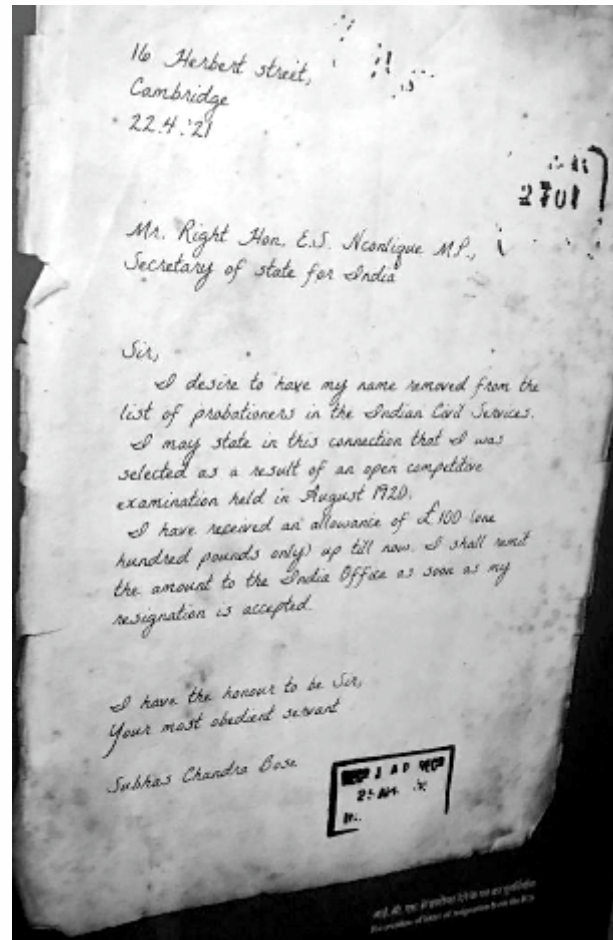 16 Herbert street,
Cambridge
22.4.'21
2701
Mr. Right Hon. E.S. Nconlique M.P.,
Secretary of state for India
Sir,
I desire to have my name removed from the
list of probationers in the Indian Civil Services.
I may state in this connection that I was
selected as a result of an open competitive
examination held in August 1920.
I have received an allowance of £100 (one
hundred pounds only) up till now. I shall remit
the amount to the India Office as soon as my
resignation is accepted.
I have the honour to be Sir,
Your most obedient servant
Subhas Chandra Bose
letter of resignation from the ICS